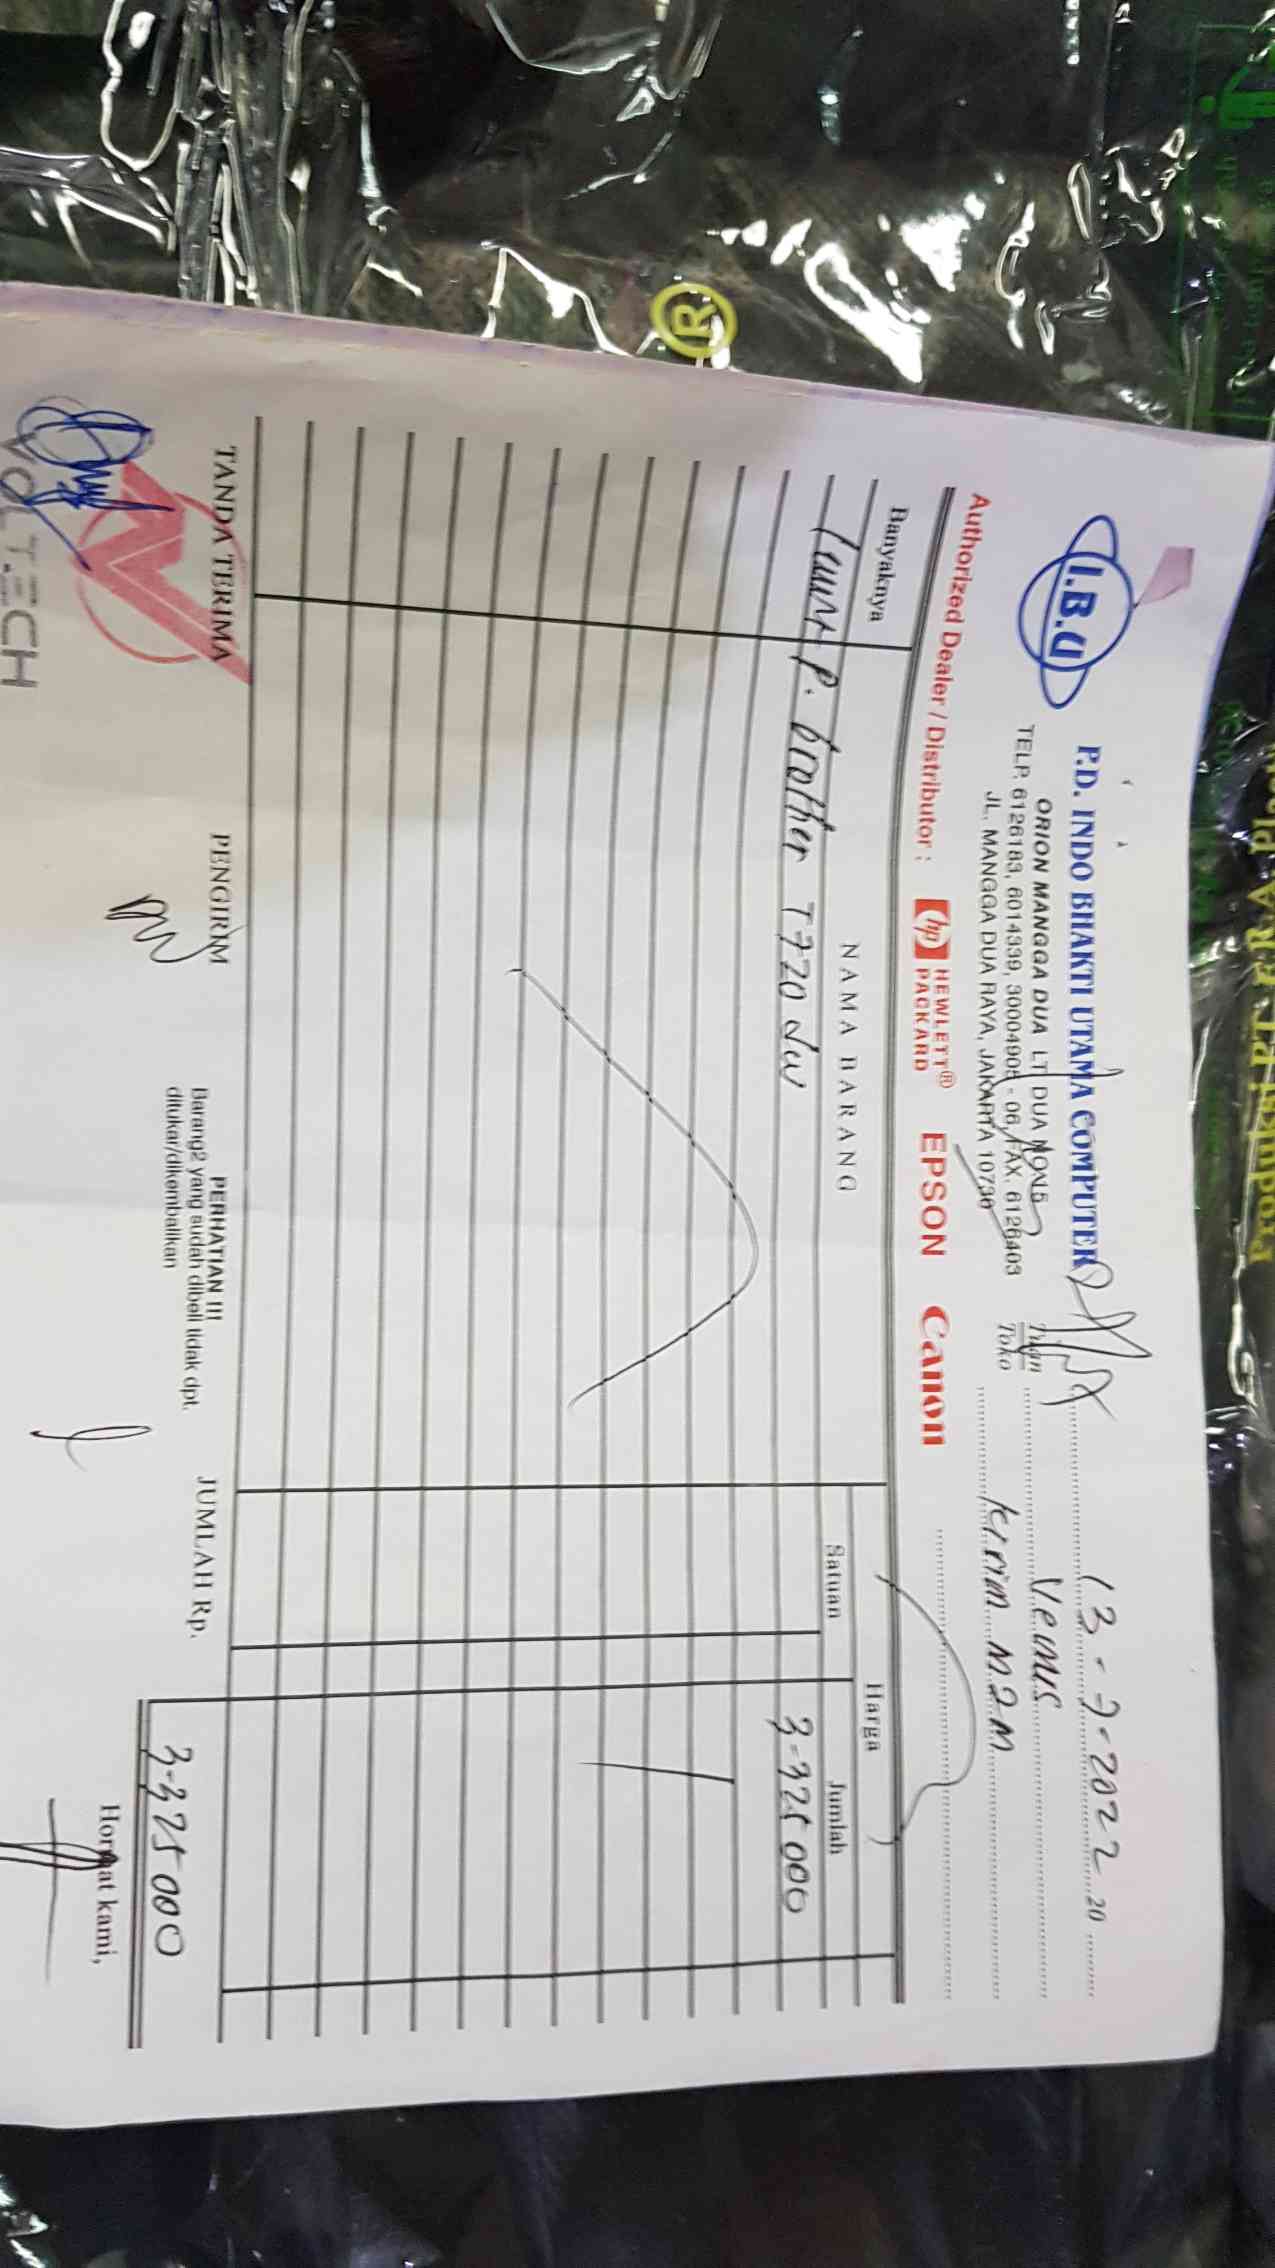 I.B.U
P.D. INDO BHAKTI UTAMA COMPUTER
ORION MANGGA DUA LT DUA NO 15
TELP. 6126183, 6014339, 30004905 - 06, FAX. 6126403
JL. MANGGA DUA RAYA, JAKARTA 10730
13-7-2022 20
Tuan Venus
Toko Kirim M2M
Authorized Dealer / Distributor : hp HEWLETT® PACKARD EPSON Canon
Banyaknya NAMA BARANG Harga
Satuan Jumlah
1 unit P. Brother T720 DW 3.325 000
TANDA TERIMA PENGIRIM
PERHATIAN !!!
Barang2 yang sudah dibeli tidak dpt.
ditukar/dikembalikan
JUMLAH Rp. 3.325 000
Hormat kami,
VOLTECH
®
Produksi PT